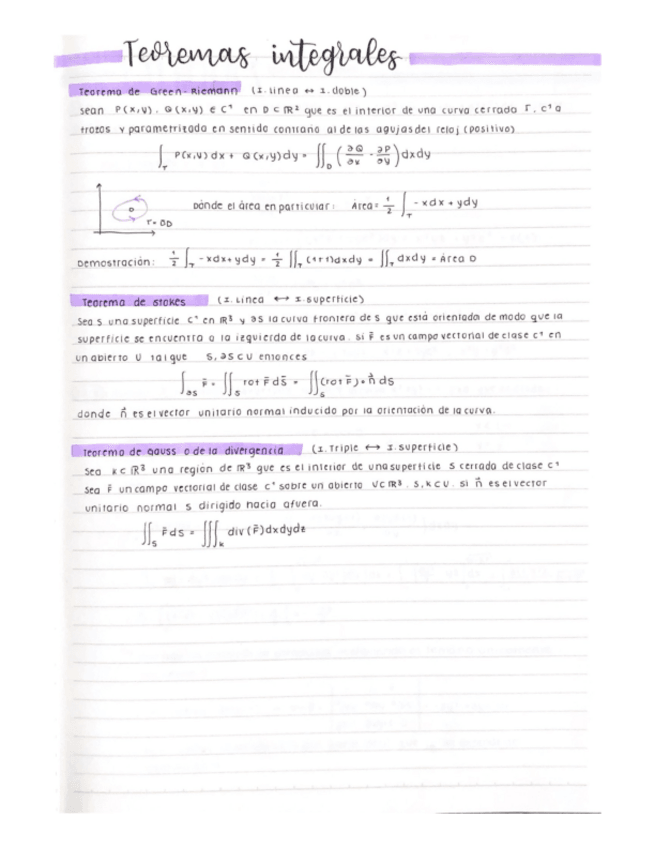 Teoremas integrales
Teorema de Green-Riemann (I. línea ↔ I. doble)
Sean P(x,y), Q(x,y) ∈ C¹ en D ⊂ ℝ² que es el interior de una curva cerrada Γ, C¹ a
trozos y parametrizada en sentido contrario al de las agujas del reloj (positivo)
∫_Γ P(x,y) dx + Q(x,y) dy = ∬_D (∂Q/∂x - ∂P/∂y) dxdy
D
Γ = ∂D
Dónde el área en particular: Área = 1/2 ∫_Γ -xdx + ydy
Demostración: 1/2 ∫_Γ -xdx + ydy = 1/2 ∬_Γ (1+1)dxdy = ∬_Γ dxdy = Área D
Teorema de Stokes (I. Línea ↔ I. superficie)
Sea S una superficie C¹ en ℝ³ y ∂S la curva frontera de S que está orientada de modo que la
superficie se encuentra a la izquierda de la curva. Si F̄ es un campo vectorial de clase C¹ en
un abierto U tal que S, ∂S ⊂ U entonces
∫_∂S F̄ = ∬_S rot F̄ dS̄ = ∬_S (rot F̄) • n̄ dS
donde n̄ es el vector unitario normal inducido por la orientación de la curva.
Teorema de Gauss o de la divergencia (I. Triple ↔ I. superficie)
Sea K ⊂ ℝ³ una región de ℝ³ que es el interior de una superficie S cerrada de clase C¹
Sea F̄ un campo vectorial de clase C¹ sobre un abierto U ⊂ ℝ³, S, K ⊂ U. Si n̄ es el vector
unitario normal S dirigido hacia afuera.
∬_S F̄ dS = ∭_K div (F̄) dxdydz